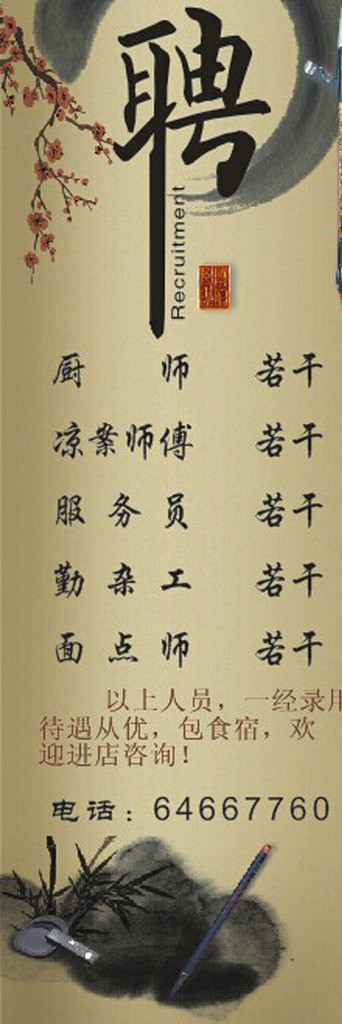 聘
Recruitment
厨师 若干
凉菜师傅 若干
服务员 若干
勤杂工 若干
面点师 若干
以上人员，一经录用
待遇从优，包食宿，欢
迎进店咨询！
电话：64667760